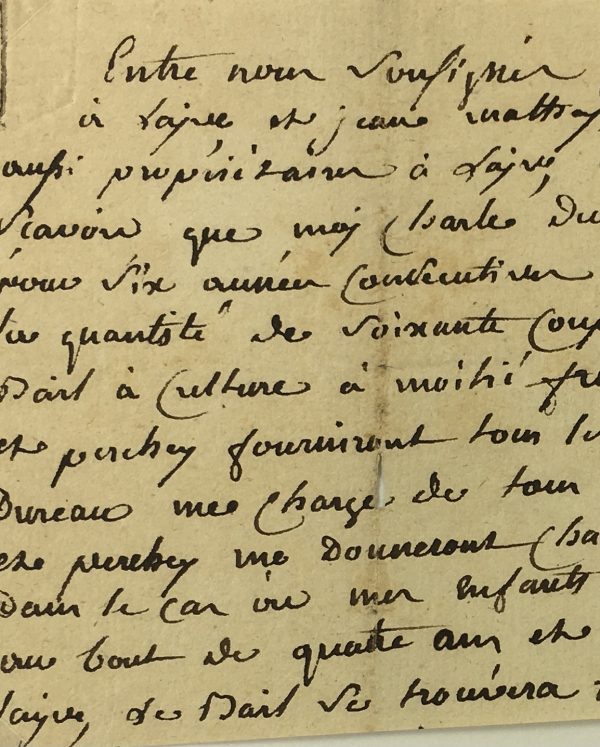 Entre nous Sousignés
à Layre et jean matthey
aussi propriétaires à Layre,
Scavoir que moy Charle Du
pour Six années Consecutives
La quantité de Soixante Coup
Bail à Culture à moitié fr
et perchey fourniront tous le
Dureau me Charge de tous
et perchey me Donneront Cha
Dans le cas où mes Enfants
au bout de quatre ans et
Layre, Le Bail Se trouvera